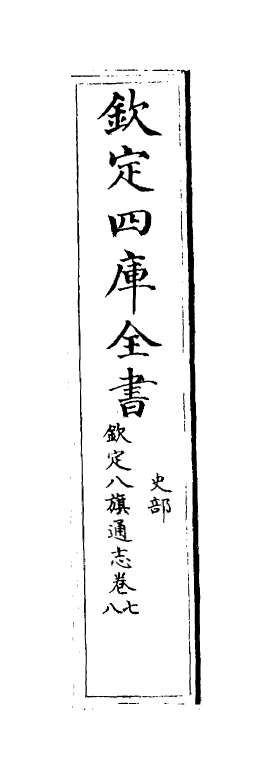 欽定四庫全書
史部
欽定八旗通志卷七八